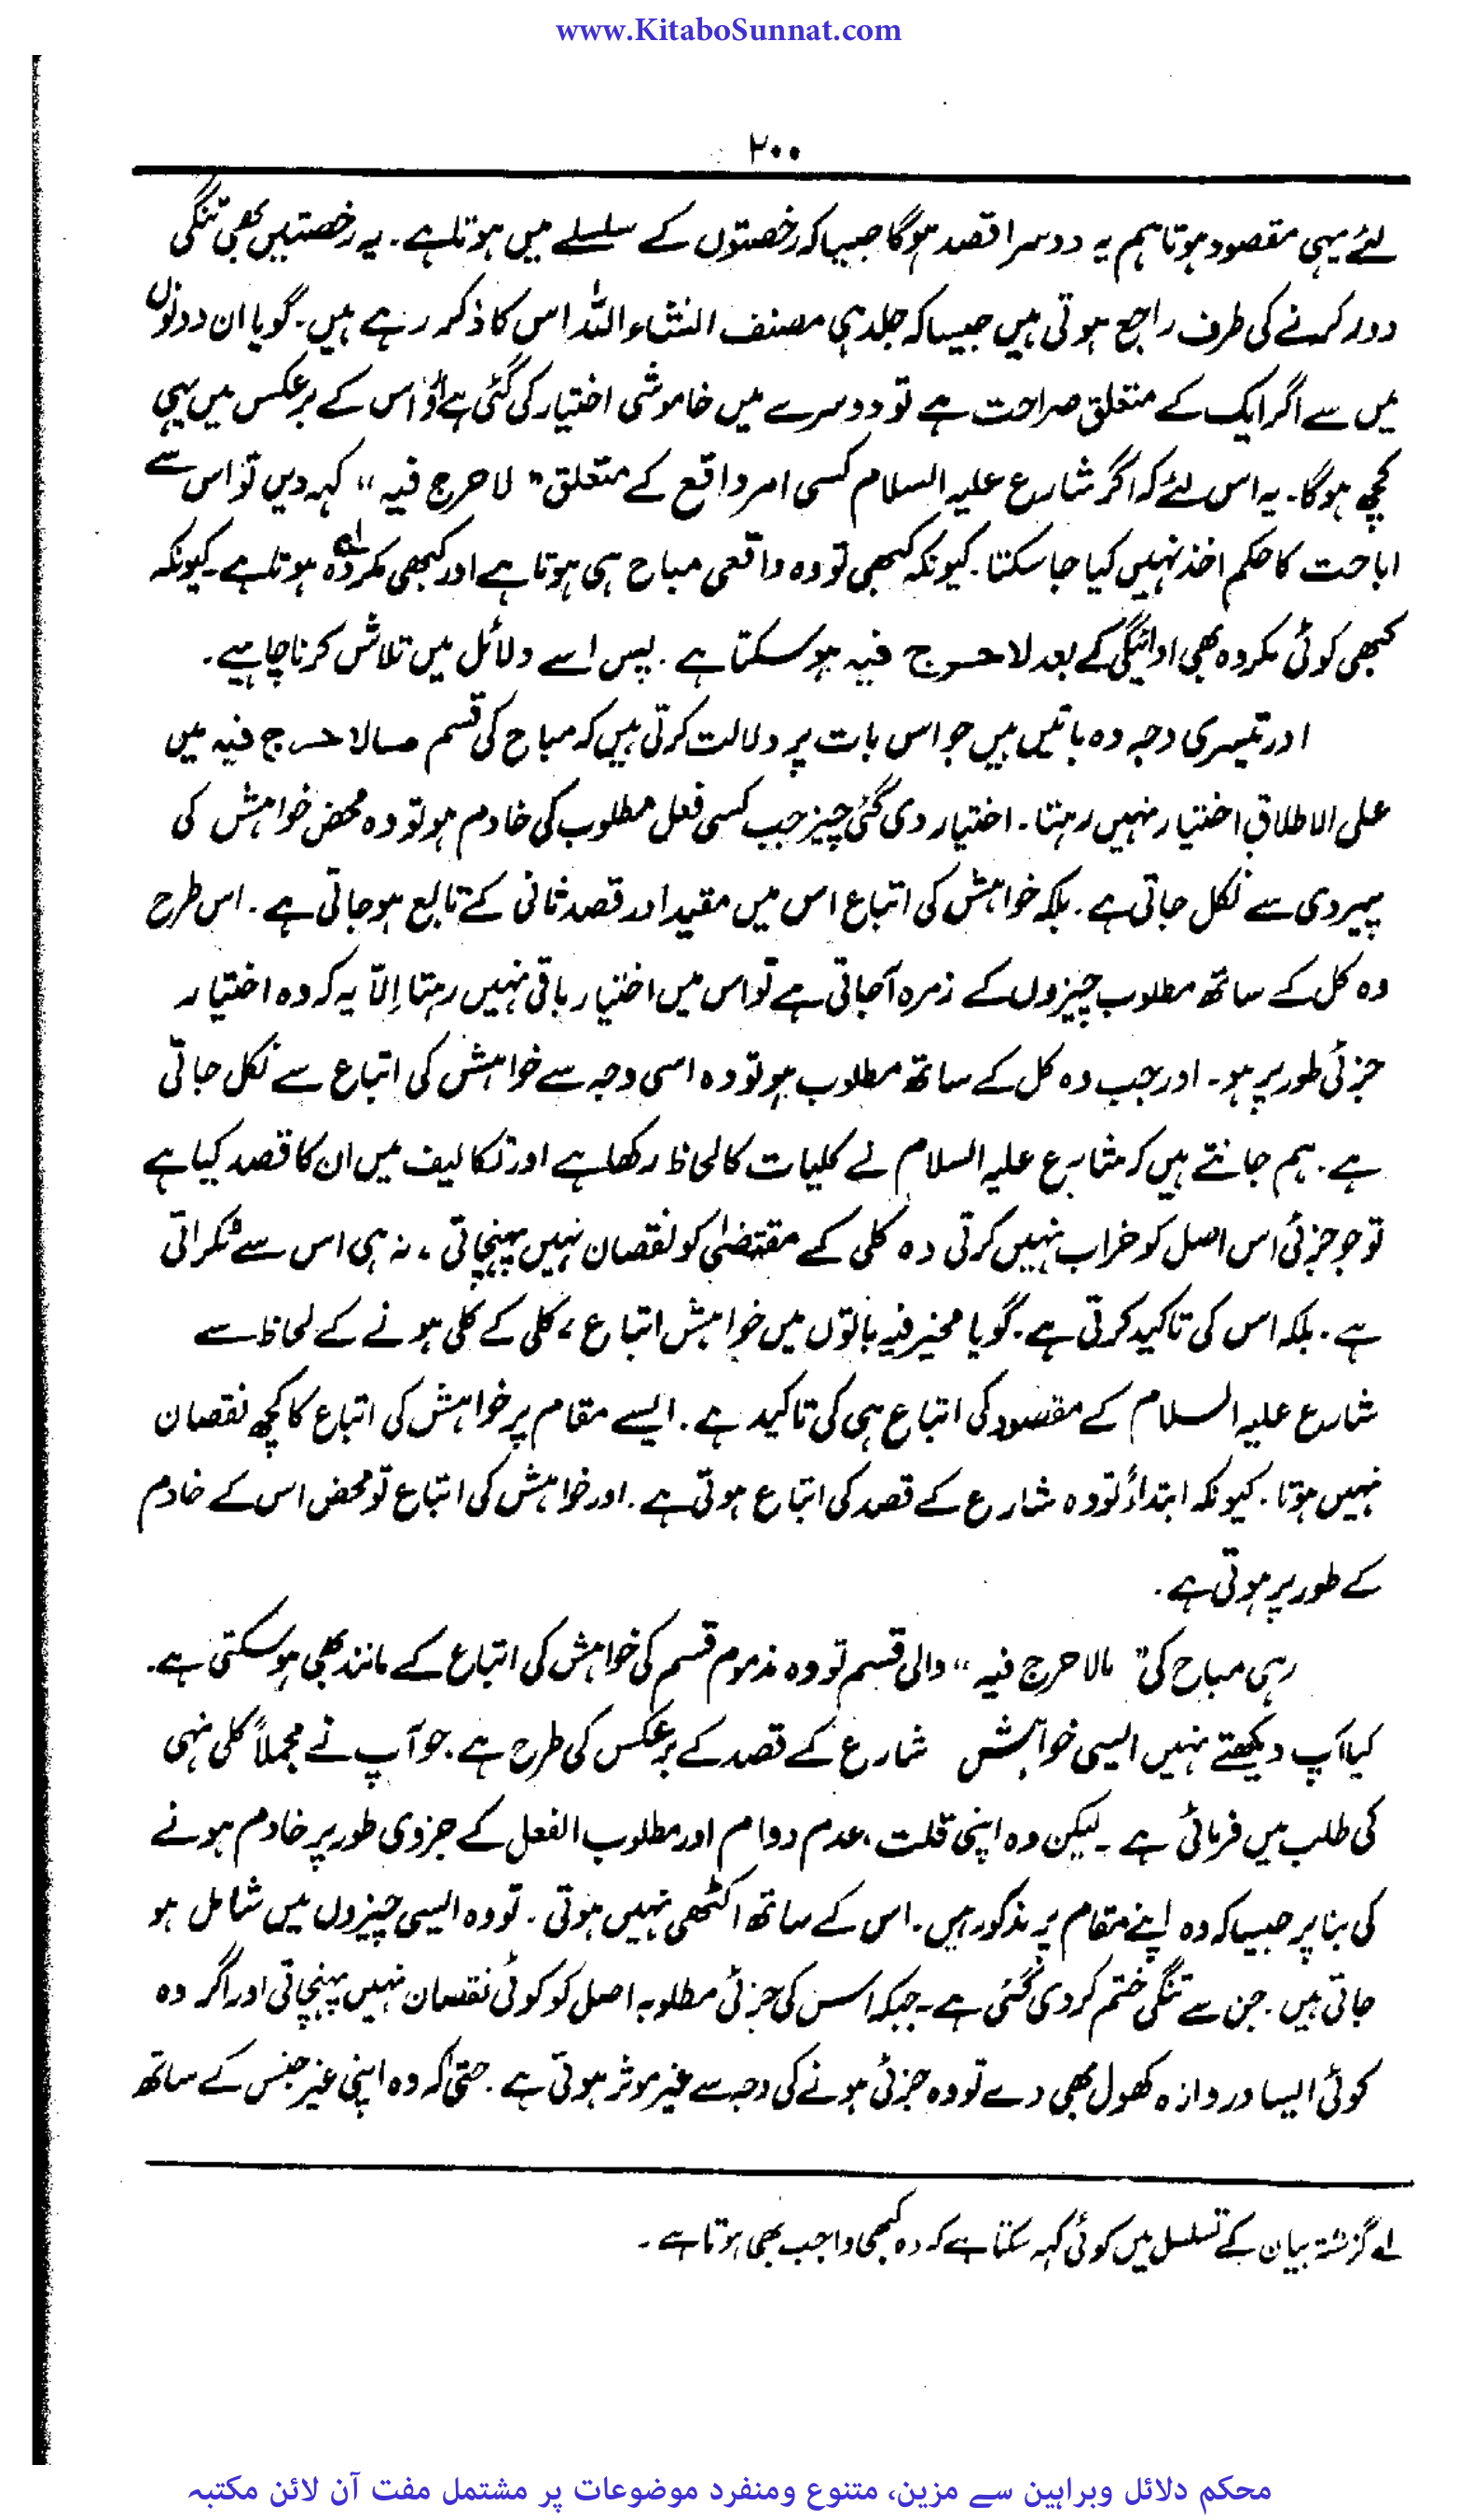 www.KitaboSunnat.com
۲۰۰
لئے یہی مقصود ہو تاہم یہ دوسرا قصد ہوگا جیسا کہ رخصتوں کے سلسلے میں ہوتا ہے۔ یہ رخصتیں بھی تنگی
دور کرنے کی طرف راجع ہوتی ہیں جیسا کہ جلد ہی مصنف انشاء اللہ اس کا ذکر رہے ہیں۔ گویا ان دونوں
میں سے اگر ایک کے متعلق صراحت ہے تو دوسرے میں خاموشی اختیار کی گئی ہے اور اس کے برعکس میں یہی
کچھ ہوگا۔ یہ اس لئے کہ اگر شارع علیہ السلام کسی امر واقع کے متعلق "لا حرج فیہ" کہہ دیں تو اس سے
اباحت کا حکم اخذ نہیں کیا جا سکتا۔ کیونکہ کبھی تو وہ واقعی مباح ہی ہوتا ہے اور کبھی مکروہ لہ ہوتا ہے۔ کیونکہ
کبھی کوئی مکروہ بھی ادائیگی کے بعد لا حرج فیہ ہو سکتا ہے۔ پس اسے دلائل میں تلاش کرنا چاہیے۔
اور تیسری وجہ وہ باتیں ہیں جو اس بات پر دلالت کرتی ہیں کہ مباح کی قسم مالا حرج فیہ میں
علی الاطلاق اختیار نہیں رہتا۔ اختیار دی گئی چیز جب کسی فعل مطلوب کی خادم ہو تو وہ محض خواہش کی
پیروی سے نکل جاتی ہے۔ بلکہ خواہش کی اتباع اس میں مقید اور قصد ثانی کے تابع ہو جاتی ہے۔ اس طرح
وہ کل کے ساتھ مطلوب چیزوں کے زمرہ آجاتی ہے تو اس میں اختیار باقی نہیں رہتا اِلّا یہ کہ وہ اختیار
جزئی طور پر ہو۔ اور جب وہ کل کے ساتھ مطلوب ہو تو وہ اسی وجہ سے خواہش کی اتباع سے نکل جاتی
ہے۔ ہم جانتے ہیں کہ شارع علیہ السلام نے کلیات کا لحاظ رکھا ہے اور تکالیف میں ان کا قصد کیا ہے
تو جو جزئی اس اصل کو خراب نہیں کرتی وہ کلی کے مقتضیٰ کو نقصان نہیں پہنچاتی، نہ ہی اس سے ٹکراتی
ہے۔ بلکہ اس کی تاکید کرتی ہے۔ گویا مخیر فیہ باتوں میں خواہش اتباع، کلی کے کلی ہونے کے لحاظ سے
شارع علیہ السلام کے مقصود کی اتباع ہی کی تاکید ہے۔ ایسے مقام پر خواہش کی اتباع کا کچھ نقصان
نہیں ہوتا۔ کیونکہ ابتداءً تو وہ شارع کے قصد کی اتباع ہوتی ہے۔ اور خواہش کی اتباع تو محض اس کے خادم
کے طور پر ہوتی ہے۔
رہی مباح کی "مالا حرج فیہ" والی قسم تو وہ مذموم قسم کی خواہش کی اتباع کے مانند بھی ہو سکتی ہے۔
کیا آپ دیکھتے نہیں ایسی خواہش شارع کے قصد کے برعکس کی طرح ہے۔ جو آپ نے مجملاً کلی نہی
کی طلب میں فرمائی ہے۔ لیکن وہ اپنی قلت، عدم دوام اور مطلوب الفعل کے جزوی طور پر خادم ہونے
کی بنا پر جیسا کہ وہ اپنے مقام پر مذکور ہیں۔ اس کے ساتھ اکٹھی نہیں ہوتی۔ تو وہ ایسی چیزوں میں شامل ہو
جاتی ہیں۔ جن سے تنگی ختم کردی گئی ہے۔ جبکہ اس کی جزئی مطلوبہ اصل کو کوئی نقصان نہیں پہنچاتی اور اگر وہ
کوئی ایسا دروازہ کھول بھی دے تو وہ جزئی ہونے کی وجہ سے غیر موثر ہوتی ہے۔ حتیٰ کہ وہ اپنی غیر جنس کے ساتھ
لہ گزشتہ بیان کے تسلسل میں کوئی کہہ سکتا ہے کہ وہ کبھی واجب بھی ہوتا ہے۔
محکم دلائل وبراہین سے مزین، متنوع ومنفرد موضوعات پر مشتمل مفت آن لائن مکتبہ